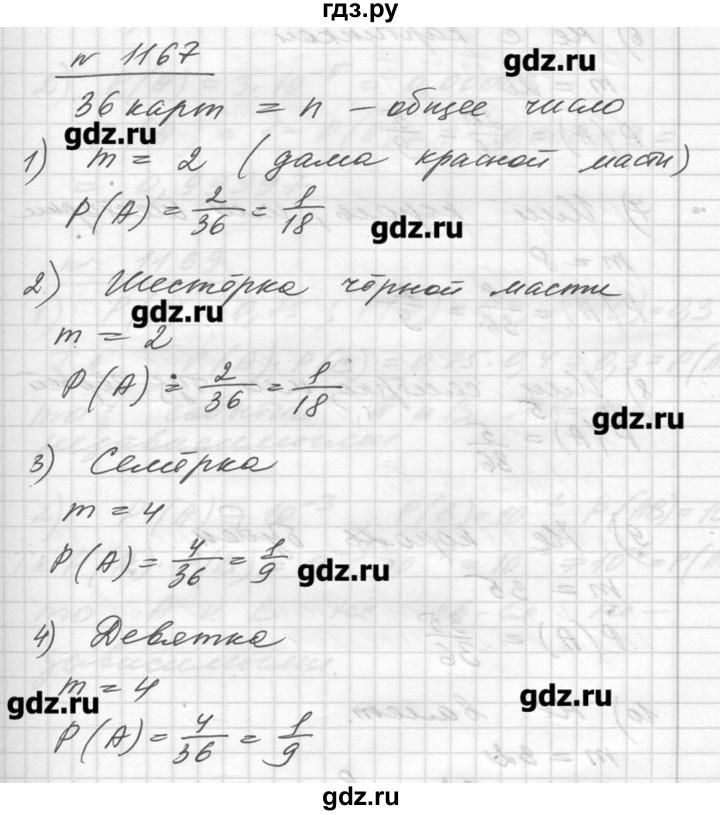 гдз.ру
№ 1167
gdz.ru
36 карт = n – общее число
gdz.ru
1) m = 2 (дама красной масти)
P(A) = 2/36 = 1/18
gdz.ru
2) Шестёрка чёрной масти
gdz.ru
m = 2
P(A) = 2/36 = 1/18
gdz.ru
3) Семёрка
m = 4
P(A) = 4/36 = 1/9
gdz.ru
4) Девятка
m = 4
gdz.ru
gdz.ru
P(A) = 4/36 = 1/9
gdz.ru